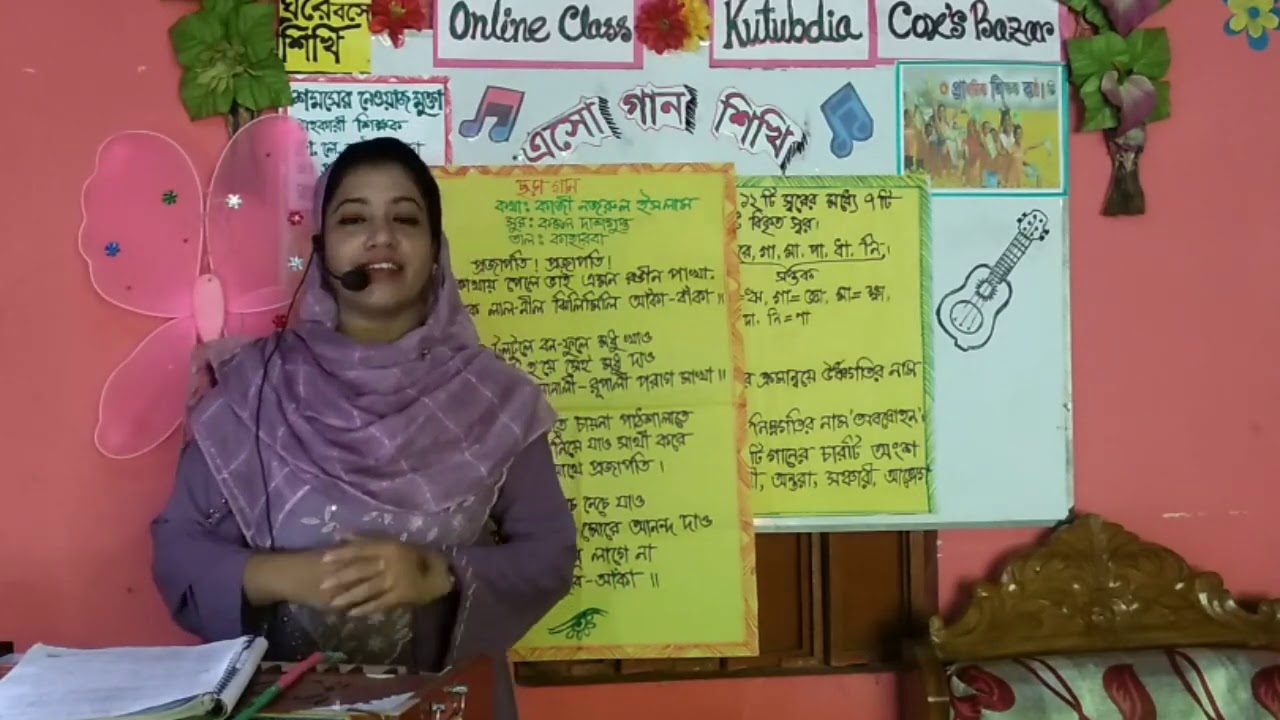 ঘরে বসে
শিখি
Online Class
Kutubdia
Cox's Bazar
সহকারী শিক্ষক
এসো গান শিখি
ছড়া গান
কথা: কাজী নজরুল ইসলাম
সুর: কমল দাশগুপ্ত
তাল: কাহারবা
প্রজাপতি! প্রজাপতি!
কোথায় পেলে ভাই এমন রঙীন পাখা
লাল-নীল ঝিলিমিলি আঁকা-বাঁকা ॥
বন-ফুলে মধু খাও
হয়ে সেই মধু দাও
সোনালী-রূপালী পরাগ মাখা ॥
চায়না পাঠশালাতে
নিয়ে যাও সাথী করে
সাথে প্রজাপতি।
নেচে যাও
মোরে আনন্দ দাও
লাগে না
আঁকা ॥
১২টি সুরের মধ্যে ৭টি
বিকৃত সুর।
রে, গা, মা, পা, ধা, নি,
সপ্তক
ঋ, গা= জ্ঞ, মা= হ্ম,
দা, নি=ণা
ক্রমান্বয়ে উর্ধ্বগতির নাম
নিম্নগতির নাম 'অবরোহন'।
টি গানের চারটি অংশ
অন্তরা, সঞ্চারী, আভোগ